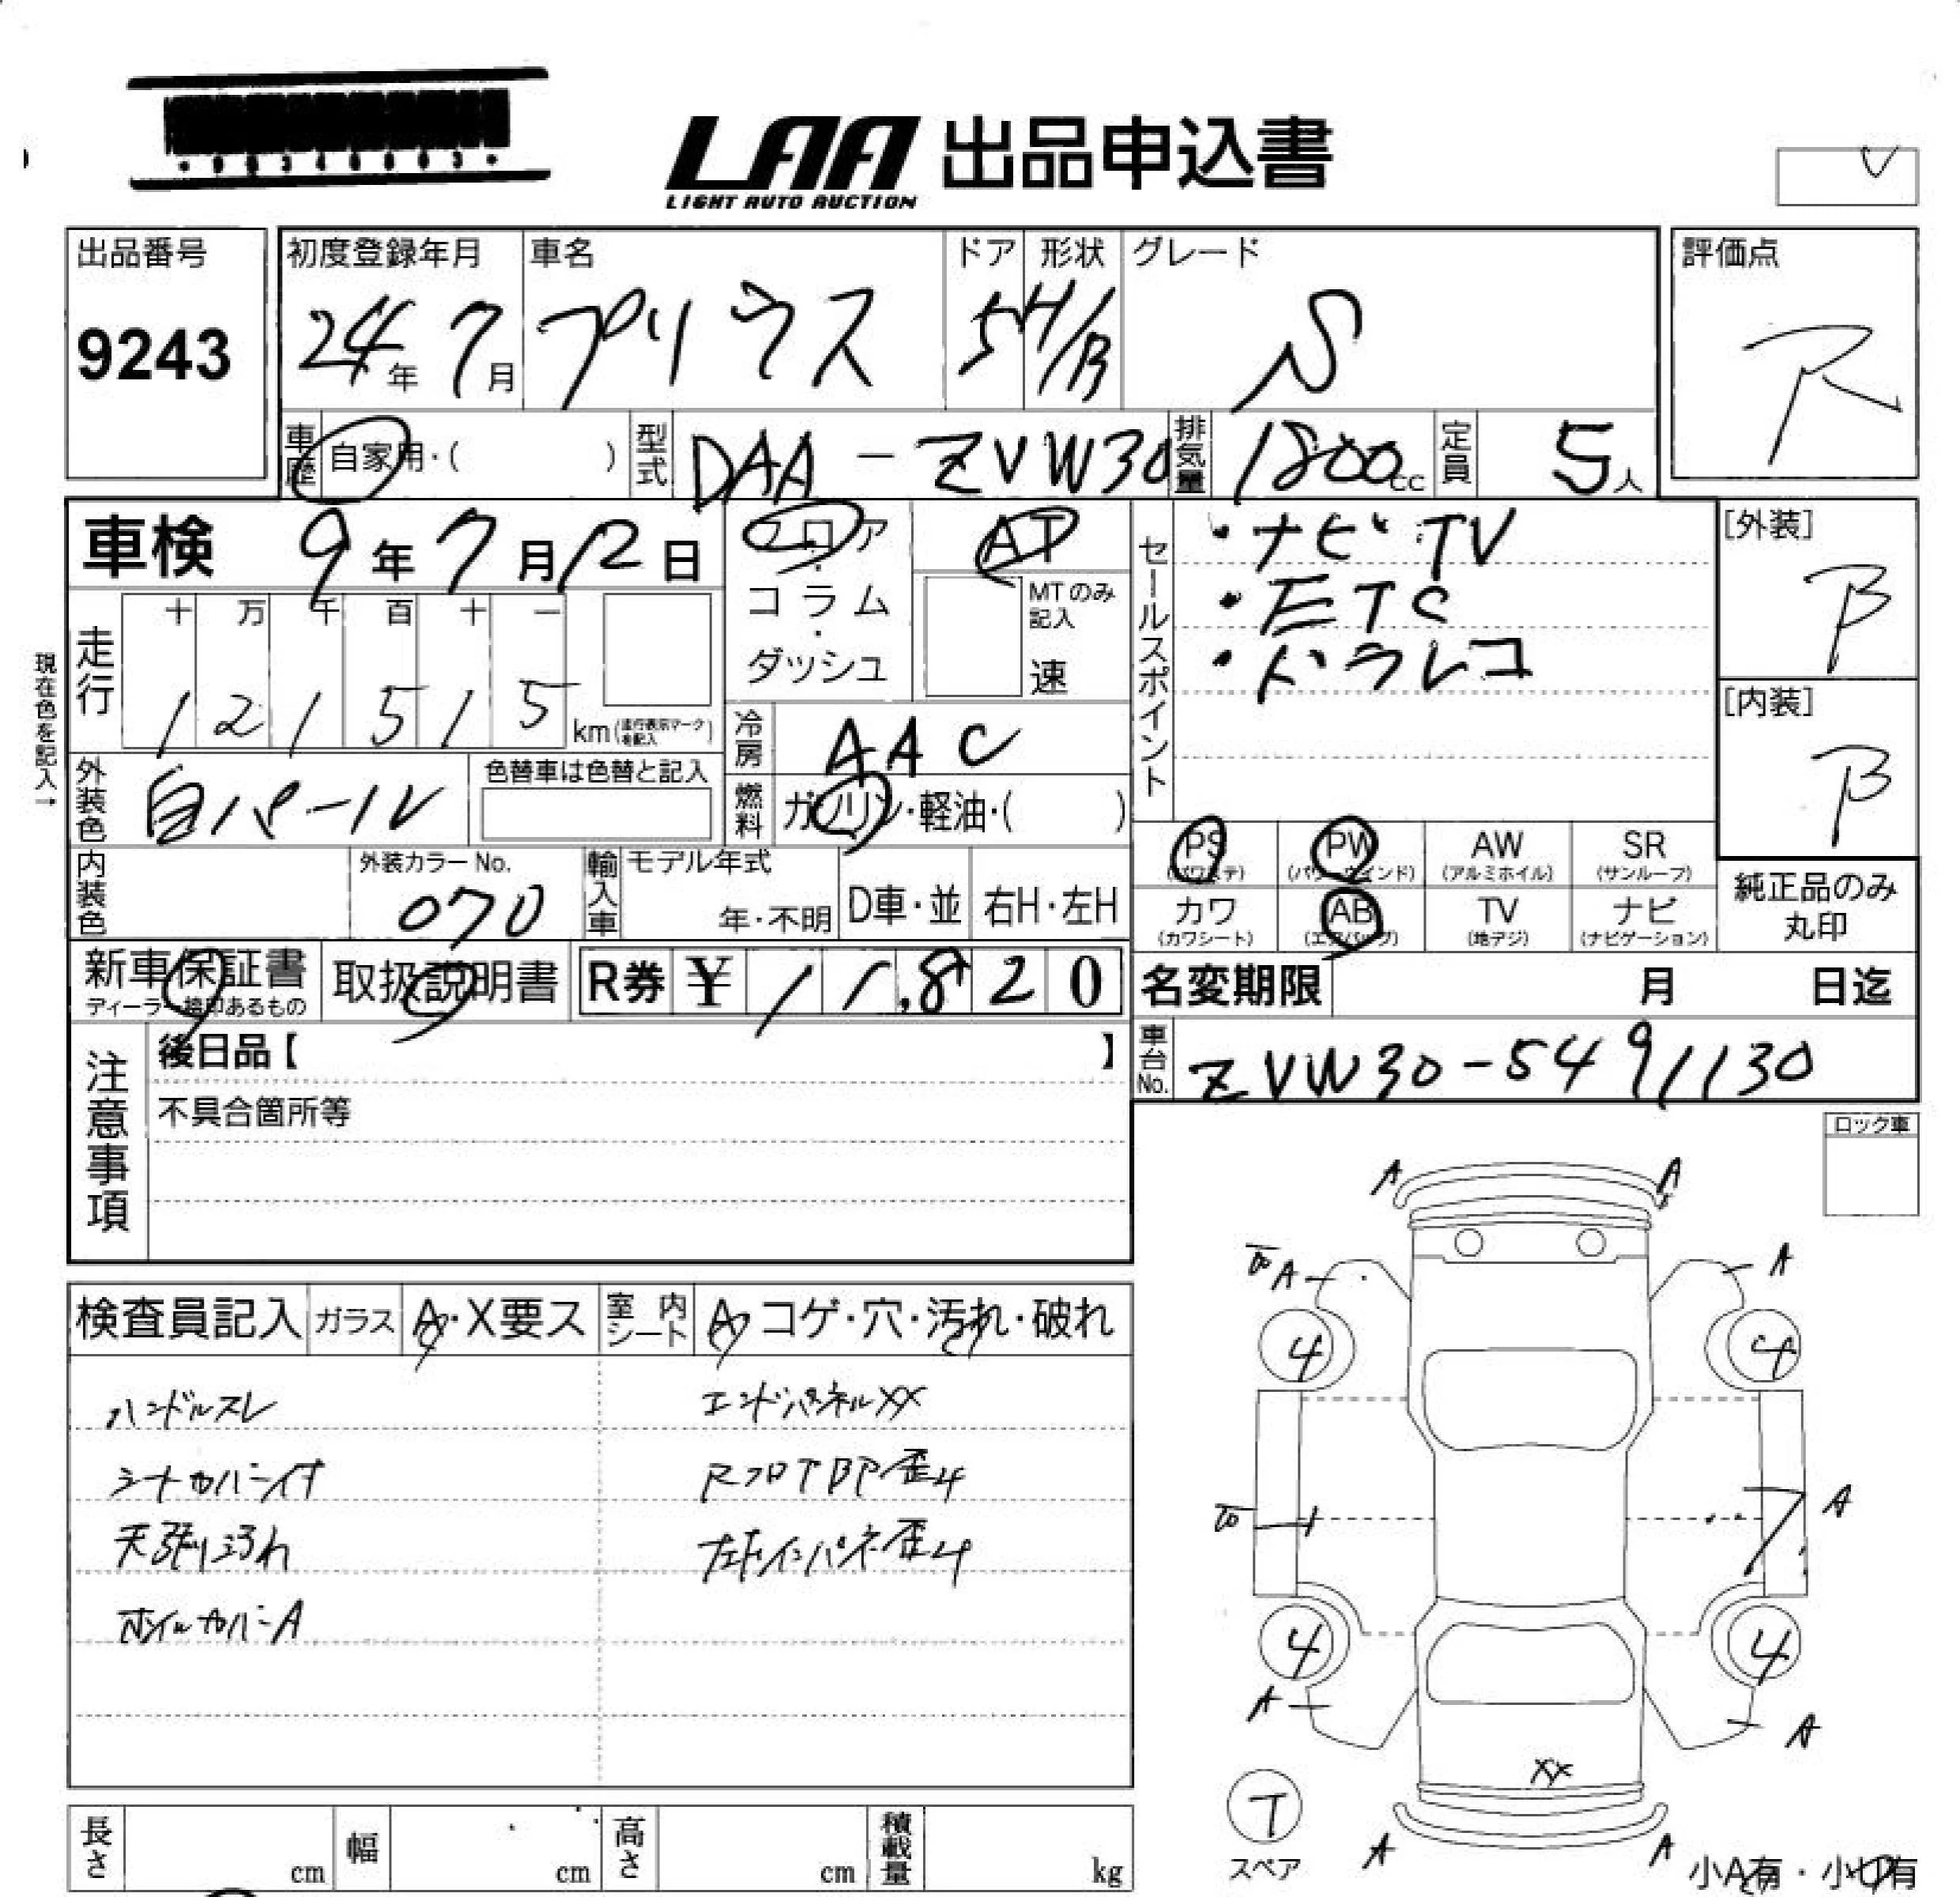 LAA 出品申込書
LIGHT AUTO AUCTION
出品番号
9243
初度登録年月
24年 7月
車名
プリウス
ドア
5
形状
H/B
グレード
S
評価点
R
車歴
自家用・( )
型式
DAA-ZVW30
排気量
1800cc
定員
5人
車検 9年 7月 12日
フロア
・
コラム
・
ダッシュ
AT
MTのみ記入
速
セールスポイント
・ナビ TV
・ETC
・ドラレコ
[外装]
B
[内装]
B
現在色を記入→
走行
十 万 千 百 十 一
1 2 1 5 1 5 km (走行表示マークを記入)
冷房
AAC
外装色
白パール
色替車は色替と記入
燃料
ガソリン・軽油・( )
内装色
外装カラーNo.
070
輸入車
モデル年式
年・不明
D車・並
右H・左H
PS (パワステ)
PW (パワーウインド)
AW (アルミホイル)
SR (サンルーフ)
カワ (カワシート)
AB (エアバッグ)
TV (地デジ)
ナビ (ナビゲーション)
純正品のみ
丸印
新車保証書
ディーラー捺印あるもの
取扱説明書
R券 ¥ 11,820
名変期限 月 日迄
車台No.
ZVW30-5491130
注意事項
後日品【 】
不具合箇所等
ロック車
検査員記入
ガラス
A・X要ス
室内シート
A・コゲ・穴・汚れ・破れ
ハンドルスレ
シートカバー付
天張り汚れ
ホイルカバーA
エンドパネルXX
RフロアBP歪み
左右インパネ歪み
A A
A A
4 4
A
4 4
A A
XX
T
スペア
A A
小A有・小U有
長さ cm
幅 cm
高さ cm
積載量 kg